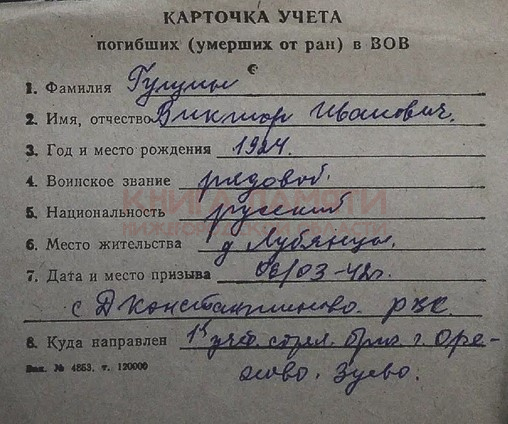 КАРТОЧКА УЧЕТА
погибших (умерших от ран) в ВОВ
1. Фамилия
2. Имя, отчество Виктор Иванович.
3. Год и место рождения 1924.
4. Воинское звание рядовой.
КНИГА ПАМЯТИ
5. Национальность русский
НИЖЕГОРОДСКОЙ ОБЛАСТИ
6. Место жительства д Лубянцы.
7. Дата и место призыва /03-42г.
с Д Константиново. РВК.
8. Куда направлен 1й учеб. стрел. бриг г. Оре-
Зак. № 4853, т. 120000
хово. Зуево.